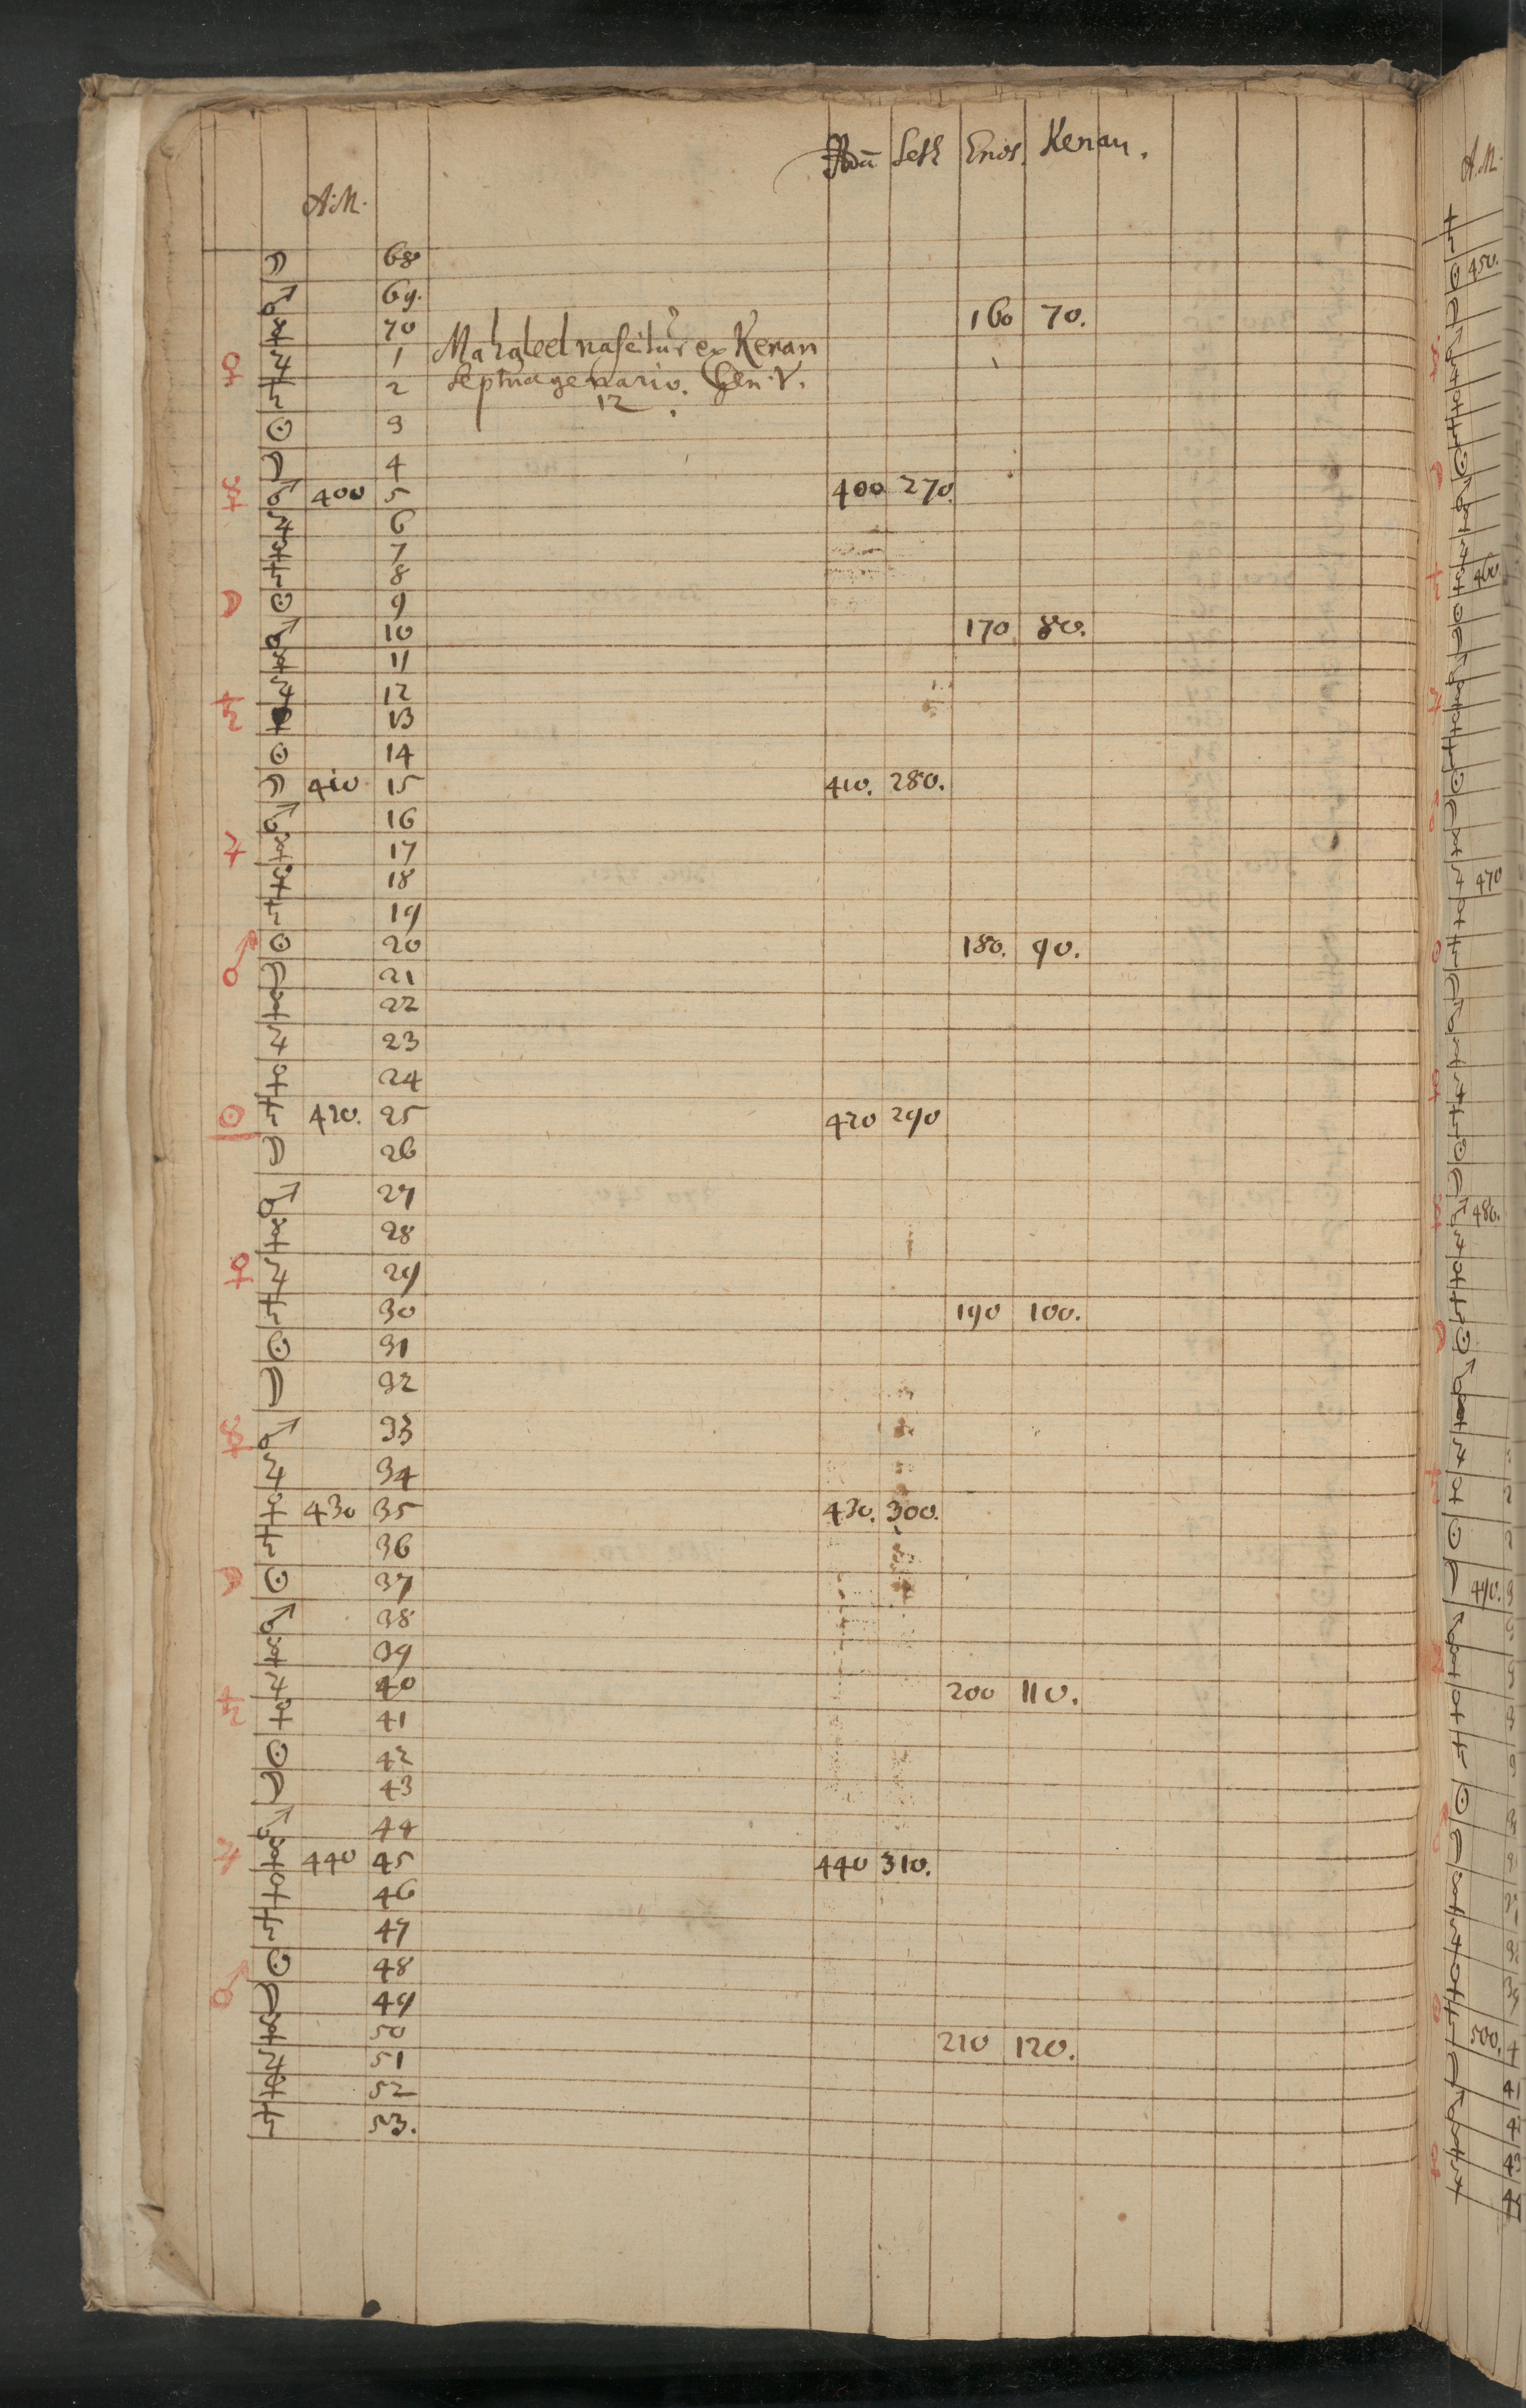 Adā Seth Enos. Kenan.
A.M.
☽ 68
♂ 69.
☿ 70 160 70.
♀ ♃ 1 Mahaleel nascitur ex Kenan
♄ 2 septuagenario. Gen. V.
12.
☉ 3
☽ 4
☿ ♂ 400 5 400 270.
♃ 6
♀ 7
♄ 8
☽ ☉ 9
♂ 10 170 80.
☿ 11
♄ ♃ 12
♀ 13
☉ 14
☽ 410 15 410. 280.
♂ 16
♃ ☿ 17
♀ 18
♄ 19
♂ ☉ 20 180. 90.
☽ 21
☿ 22
♃ 23
♀ 24
☉ ♄ 420. 25 420 290
☽ 26
♂ 27
☿ 28
♀ ♃ 29
♄ 30 190 100.
☉ 31
☽ 32
☿ ♂ 33
♃ 34
♀ 430 35 430. 300.
♄ 36
☽ ☉ 37
♂ 38
☿ 39
♃ 40 200 110.
♄ ♀ 41
☉ 42
☽ 43
♂ 44
♃ ☿ 440 45 440 310.
♀ 46
♄ 47
☉ 48
♂ ☽ 49
☿ 50 210 120.
♃ 51
♀ 52
♄ 53.
A.M.
450.
460.
470
480.
490.
500.
41
42
43